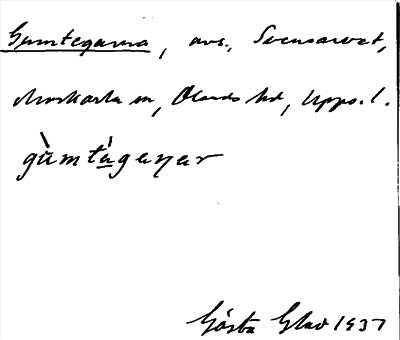 Gumtegarna, avs., Svensarvet,
Morkarla sn, Olands hd, Upps. l.
gùmtágaŋar
Gösta Glad 1937